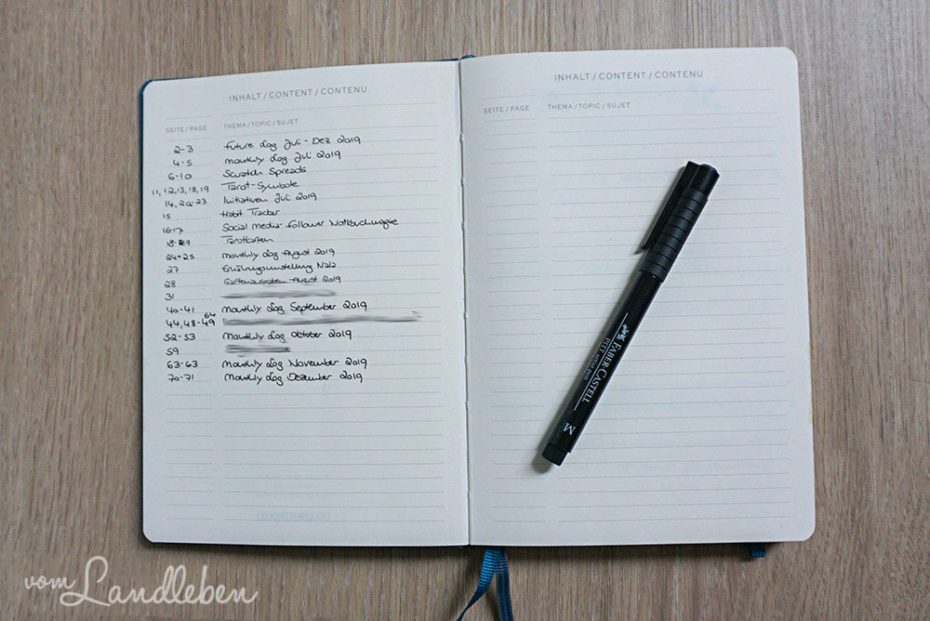 INHALT / CONTENT / CONTENU
SEITE / PAGE THEMA / TOPIC / SUJET
2-3 Future Log Juli - Dez 2019
4-5 monthly Log Juli 2019
6-10 Scratch Spreads
11, 12, 13, 18, 19 Tarot-Symbole
14, 20-23 Initiativen Juli 2019
15 Habit Tracker
16-17 Social media-Follower Notizbuchmagie
18-19 Tarotkarten
24+25 monthly Log August 2019
27 Ernährungsumstellung Nala
28 August 2019
31
40-41 Monthly Log September 2019
44, 48-49 64
52-53 Monthly Log Oktober 2019
59
63-63 Monthly Log November 2019
70-71 Monthly Log Dezember 2019
INHALT / CONTENT / CONTENU
SEITE / PAGE THEMA / TOPIC / SUJET
FABER CASTELL
PITT artist pen
M
vom Landleben